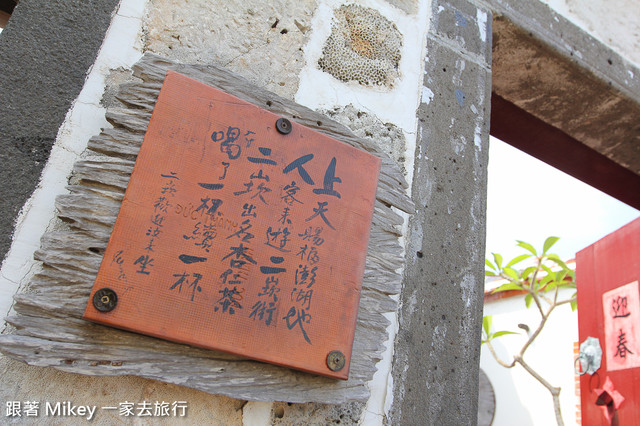 上天賜福澎湖地
人客來遊二崁街
二崁出名杏仁茶
喝了一杯續一杯
二崁 進 來坐
迎春
跟著 Mikey 一家去旅行